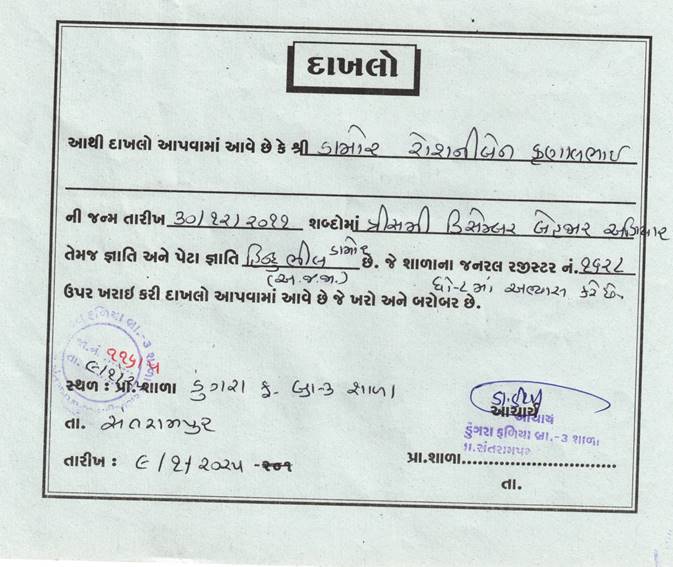 દાખલો
આથી દાખલો આપવામાં આવે છે કે શ્રી ડામોર રોશનીબેન કૃણાલભાઇ
ની જન્મ તારીખ ૩૦/૧૨/૨૦૧૧ શબ્દોમાં ત્રીસમી ડિસેમ્બર બેહજાર અગિયાર
તેમજ જ્ઞાતિ અને પેટા જ્ઞાતિ હિન્દુ ભીલ ડામોર છે. જે શાળાના જનરલ રજીસ્ટર નં. ૧૬૨૮
(અ.જ.જા.) ધો-૮માં અભ્યાસ કરે છે.
ઉપર ખરાઇ કરી દાખલો આપવામાં આવે છે જે ખરો અને બરોબર છે.
ફળિયા બ્રા.-૩ શાળા
જા.નં.
તા.
સ્થળ : પ્રા. શાળા ડુંગરા ફ. બ્રા-૩ શાળા
આચાર્ય
આચાર્ય
તા. સંતરામપુર
ડુંગરા ફળિયા બ્રા.-૩ શાળા
તા.સંતરામપુર
તારીખ : ૯/૧/૨૦૨૫
પ્રા.શાળા
તા.